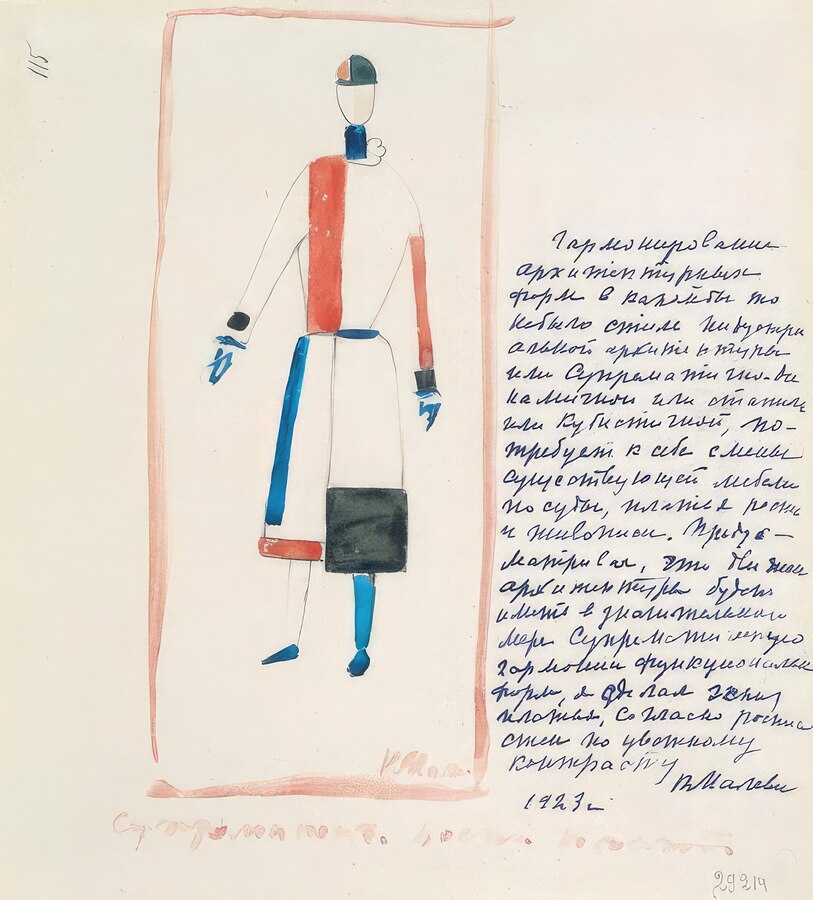 115
Гармонирование
архитектурных
форм в какой бы то
небыло стиле Индустри
альной архитектуры
или Супрематично-ди
намичной или станков
или Кубистичной, по-
требует к себе смены
существующей мебели
посуды, платья роспи
и живописи. Предус-
матривая, что движ
архитектуры будет
иметь в значительной
мере Супрематическую
гармонию функциональн
форм, я сделал эскиз
платья, согласно роспис
стен по цветному
контрасту
КМалеви
1923 г
КМале
Супрематич.
29214